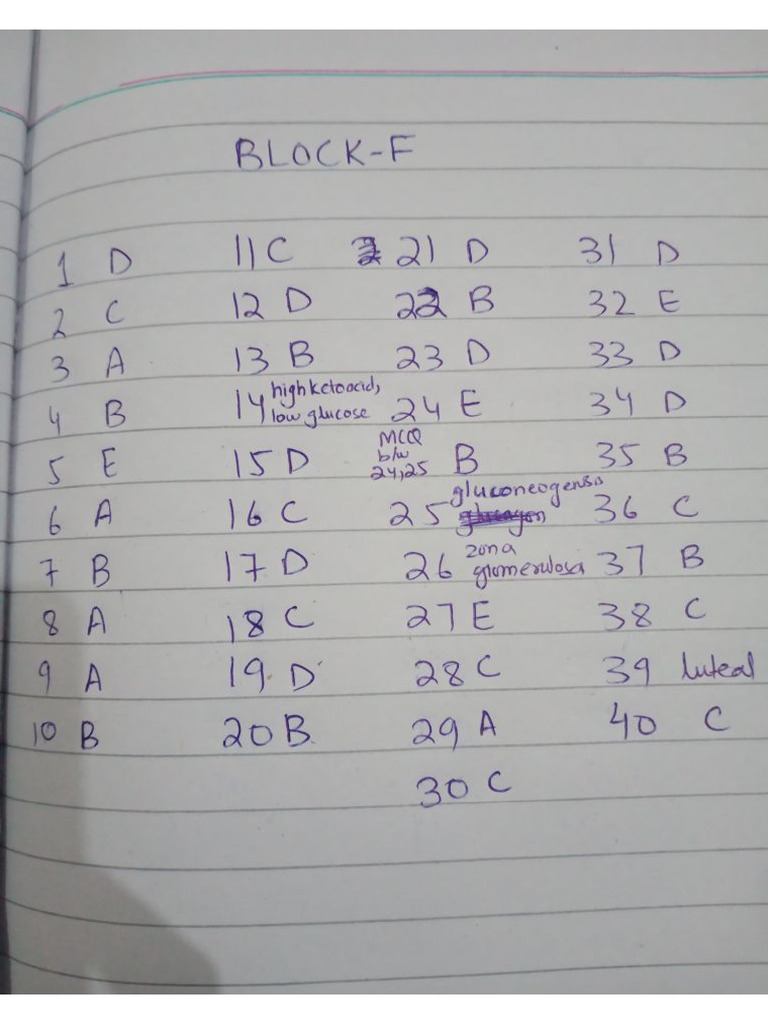 BLOCK-F
1 D
2 C
3 A
4 B
5 E
6 A
7 B
8 A
9 A
10 B
11 C
12 D
13 B
14 high ketoacid,
low glucose
15 D
16 C
17 D
18 C
19 D
20 B
21 D
22 B
23 D
24 E
MCQ
b/w
24,25 B
25 gluconeogensis
26 zona
glomerulosa
27 E
28 C
29 A
30 C
31 D
32 E
33 D
34 D
35 B
36 C
37 B
38 C
39 luteal
40 C